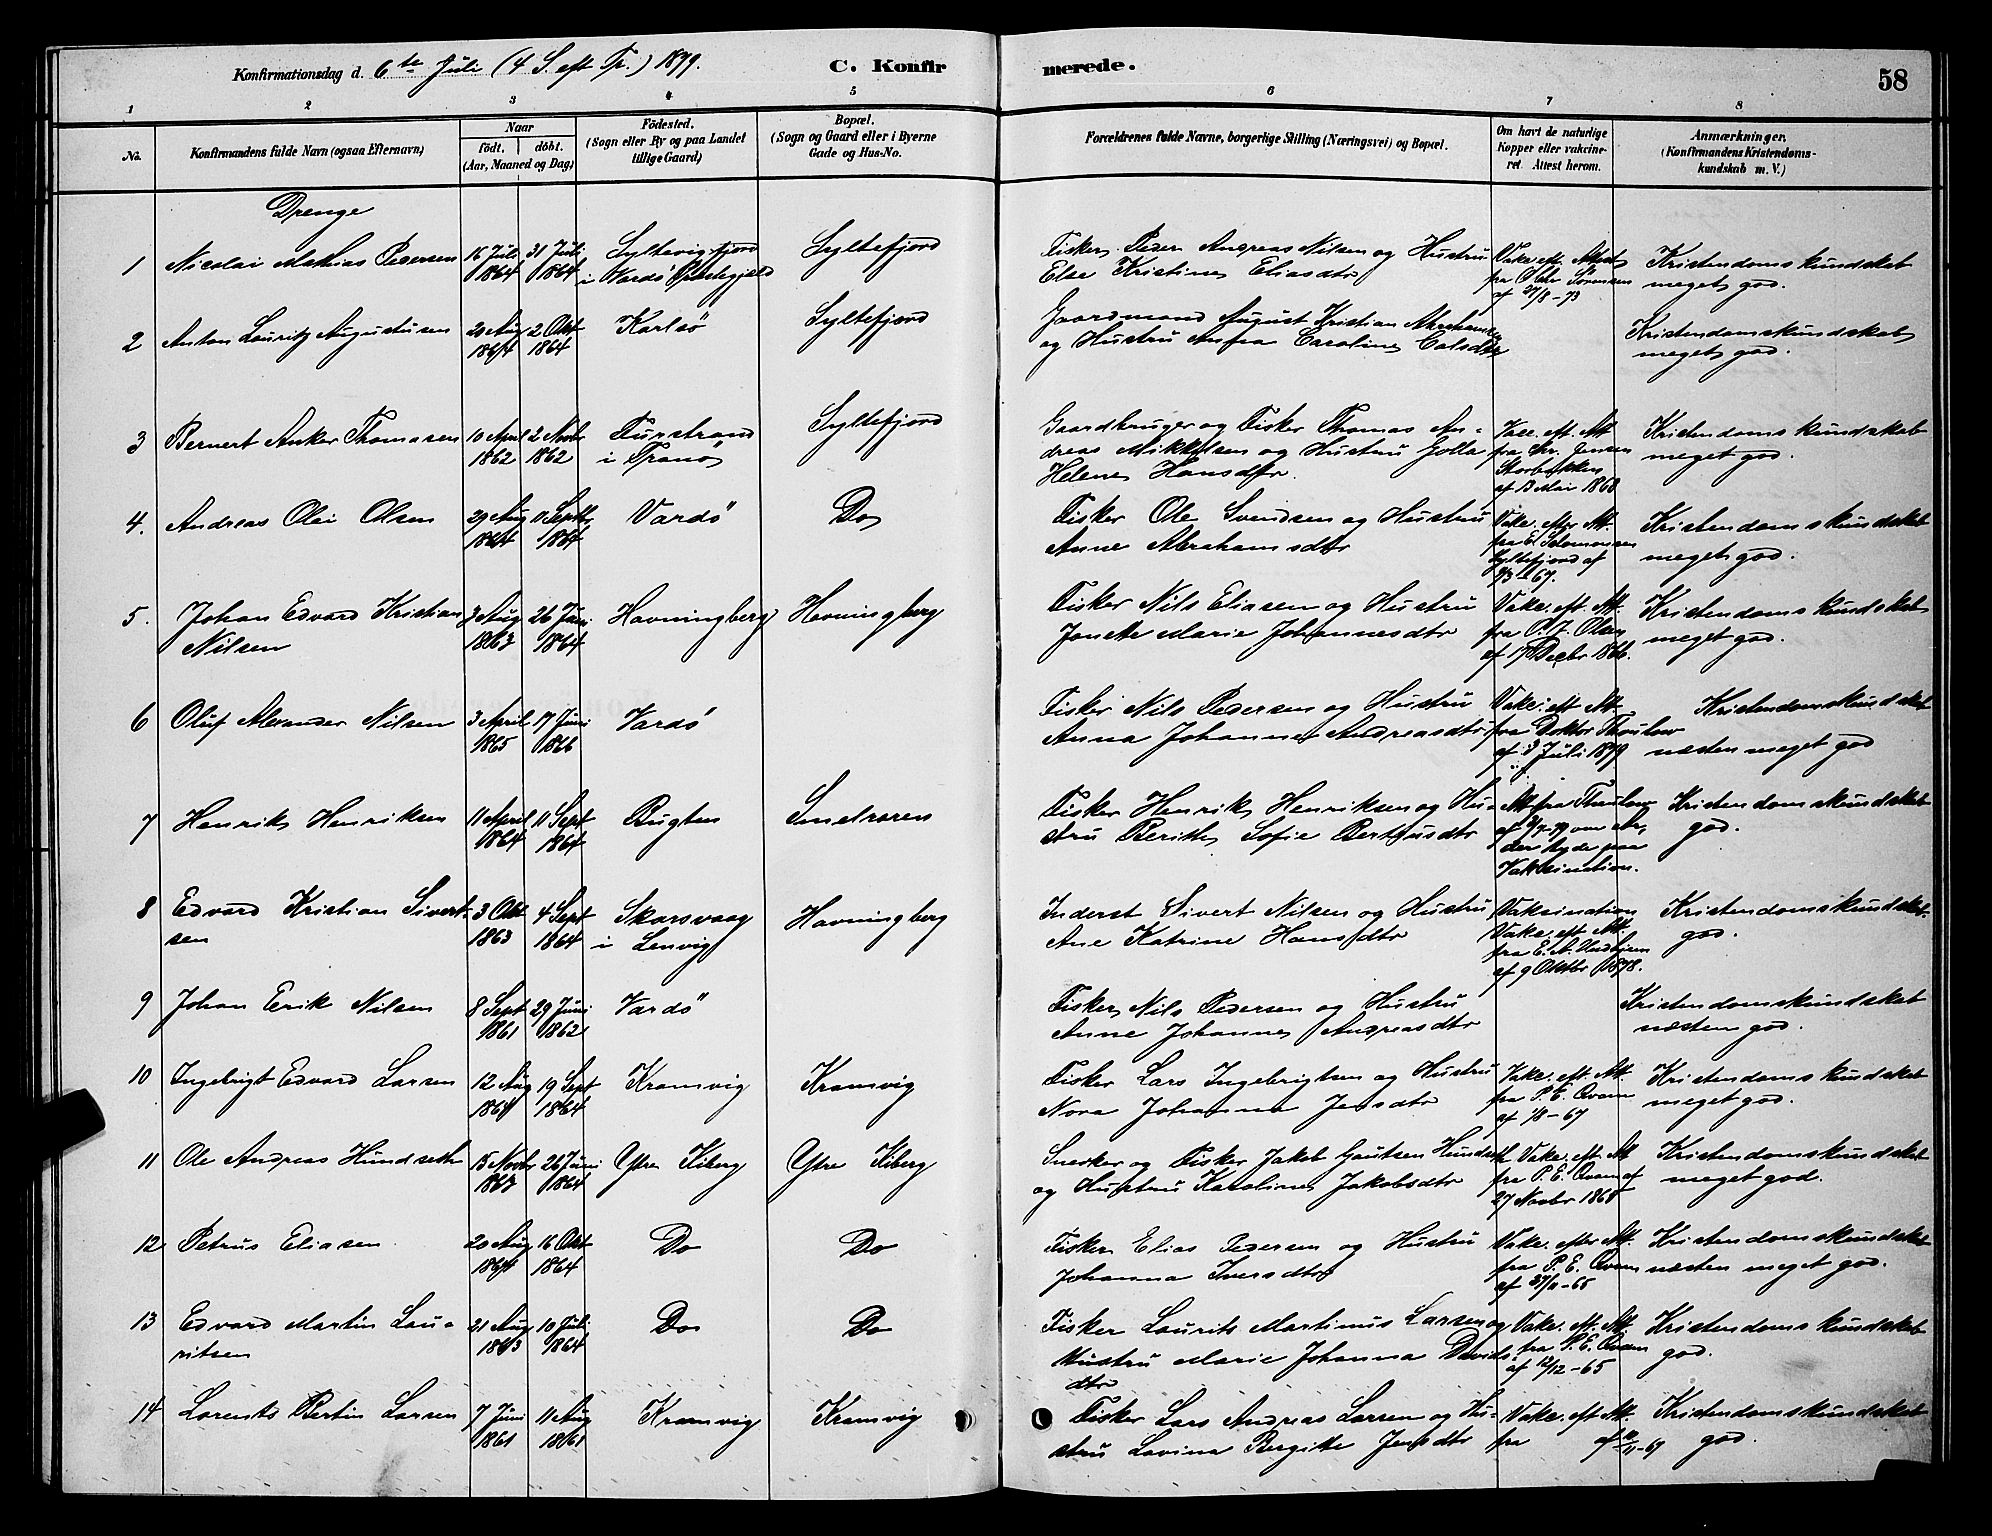 Konfirmationsdag d. 6te Juli (4 S. eft Tr.) 1879.
C. Konfir
merede.
58
1 2 3 4 5 6 7 8
No.
Konfirmandens fulde Navn (ogsaa Efternavn)
Naar
födt. döbt.
(Aar, Maaned og Dag)
Födested.
(Sogn eller By og paa Landet
tillige Gaard)
Bopæl.
(Sogn og Gaard eller i Byerne
Gade og Hus-No.
Forældrenes fulde Navne, borgerlige Stilling (Næringsvei) og Bopæl.
Om havt de naturlige
Kopper eller vakcine-
ret. Attest herom.
Anmærkninger,
(Konfirmandens Kristendoms-
kundskab m. V.)
Drenge
1 Nicolai Mathias Pedersen 16 Juli 31 Juli Syltevigfjord Syltefjord Fisker Peder Andreas Nilsen og Hustru Vakc. eft. Attest Kristendomskundskab
1864 1864 i Vardö Præstegjeld Else Kristine Eliasdtr fra Sörensen meget god.
af 27/8-73
2 Anton Lauritz Augustusen 20 Aug 2 Okt Karlsö Syltefjord Gaardmand August Kristian Abrahamsen Kristendomskundskab
1864 1864 og Hustru Anna Caroline meget god.
3 Bernert Anker Thomasen 10 April 2 Novbr Furstrand Syltefjord Gaardbruger og Fisker Thomas An- Vacc. eft. Att. Kristendomskundskab
1862 1862 i Tranö dreas Mikkelsen og Hustru Jolla fra Jensen meget god.
Helene Hansdtr. Storbakken
af 13 Mai 1863
4. Andreas Olai Olsen 29 Aug 11 Septbr Vardö Do Fisker Ole Svendsen og Hustru Vakc. efter Att. Kristendomskundskab
1864 1864 Anne Abrahamsdtr fra El Salomonsen meget god.
Syltefjord af
-67.
5. Johan Edvard Kristian 3 Aug 26 Juni Havningberg Havningberg Fisker Nils Eliasen og Hustru Vakc. eft. Att. Kristendomskundskab
Nilsen 1863 1864 Jonette Marie Johannesdtr fra O. J. Olsen meget god.
af 17 Decbr 1866.
6 Oluf Alexander Nilsen 3 April 17 Juni Vardö Fisker Nils Pedersen og Hustru Vakc. eft. Att. Kristendomskundskab
1865 1866 Anna Johanne Andreasdtr fra Doktor Thaulow næsten meget god
af 3 Juli 1879
7 Henrik Henriksen 11 April 11 Sept Bugten Smelroren Fisker Henrik Henriksen og Hu- Att. fra Thaulow Kristendomskundskab
1864 1864 stru Berith Sofie Berthusdtr af 3/7-79 om Ar, god.
der tyde paa
Vaksination.
8 Edvard Kristian Sivert- 3 Okt 4 Sept Skarsvaag Havningberg Inderst Sivert Nilsen og Hustru Vaksination Kristendomskundskab
sen 1863 1864 i Lenvig Ane Katrine Hansdtr Vakc. eft. Att. god.
fra E. A.
af 9 Oktbr 1878.
9 Johan Erik Nilsen 8 Sept 29 Juni Vardö Fisker Nils Pedersen og Hustru Kristendomskundskab
1861 1862 Anne Johanne Andreasdtr næsten god.
10 Ingebrigt Edvard Larsen 12 Aug 19 Sept Kramvig Kramvig Fisker Lars Ingebrigtsen og Hustru Vakc. eft. Att. Kristendomskundskab
1864 1864 Nora Johanna Jensdtr fra P. E. Qvam meget god.
af 1/8-67
11 Ole Andreas Hundseth 15 Novbr 26 Juni Ytre Kiberg Ytre Kiberg Snedker og Fisker Jakob Gautsen Hundseth Vakc. eft. Att Kristendomskundskab
1863 1864 og Hustru Karoline Jakobsdtr fra P. E. Qvam af meget god.
27 Novbr 1865
12 Petrus Eliasen 20 Aug 16 Okt Do Do Fisker Elias Pedersen og Hustru Vakc. efter Att. Kristendomskundskab
1864 1864 Johanna Iversdtr fra P. E. Qvam næsten meget god.
af 27/11-65
13 Edvard Martin Lau- 21 Aug 10 Juli Do Do Fisker Laurits Martinus Larsen og Vakc. eft. Att. Kristendomskundskab
ritsen 1863 1864 Hustru Marie Johanna Davids- fra P. E. Qvam god.
dtr af 12/12-65
14 Lorents Bertin Larsen 7 Juni 11 Aug Kramvig Kramvig Fisker Lars Andreas Larsen og Hu- Vakc. eft Att. Kristendomskundskab
1861 1861 stru Lovina Bergitte Jensdtr fra af -69 god.